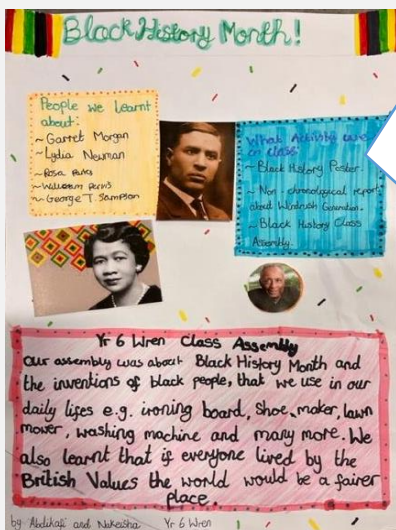 Black History Month!
People we Learnt
about:
~ Garret Morgan
~ Lydia Newman
~ Rosa Parks
~ William Purvis
~ George T. Sampson
What Activity we
in class:
~ Black History Poster.
~ Non-chronological report
about Windrush Generation.
~ Black History Class
Assembly.
Yr 6 Wren Class Assembly
Our assembly was about Black History Month and
the inventions of black people, that we use in our
daily lifes e.g. ironing board, shoe maker, lawn
mower, washing machine and many more. We
also learnt that if everyone lived by the
British Values the world would be a fairer
place.
by Abdikafi and Nakeisha Yr 6 Wren